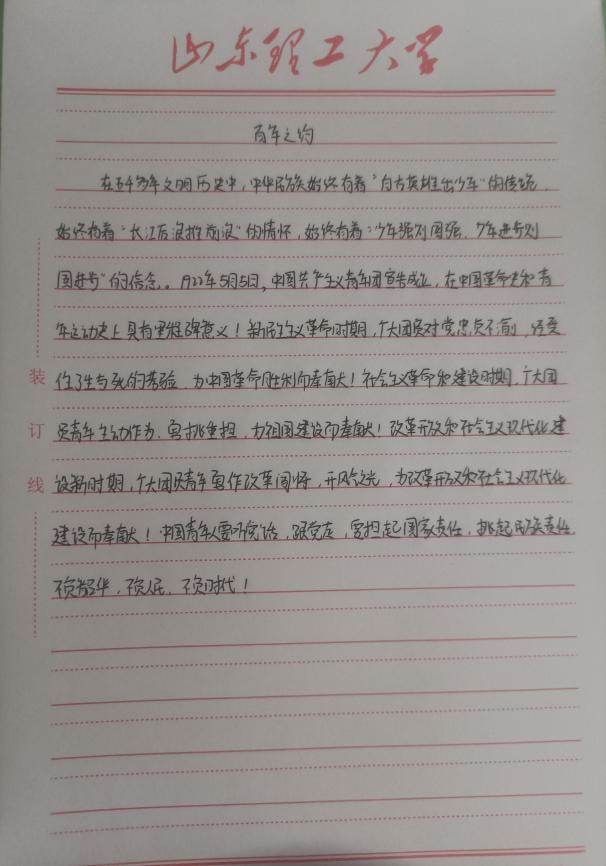 山东理工大学
百年之约
在五千多年文明历史中，中华民族始终有着“自古英雄出少年”的传统，
始终有着“长江后浪推前浪”的情怀，始终有着“少年强则国强，少年进步则
国进步”的信念。1922年5月5日，中国共产主义青年团宣告成立，在中国革命史和青
年运动史上具有里程碑意义！新民主主义革命时期，广大团员对党忠贞不渝，经受
住了生与死的考验，为中国革命胜利而奉献！社会主义革命和建设时期，广大团
员青年主动作为、勇挑重担，为祖国建设而奉献！改革开放和社会主义现代化建
设新时期，广大团员青年勇作改革闯将，开风气之先，为改革开放和社会主义现代化
建设而奉献！中国青年人要听党话，跟党走，要担起国家责任，挑起民族责任，
不负韶华，不负人民，不负时代！
装
订
线